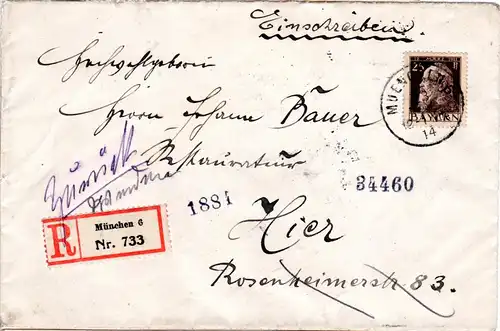 Einschreiben.
25
BAYERN
MUEN
14
Hochwohlgeboren
Herrn Johann Bauer
Restaurateur
Zurück
34460
1881
Hier
R
München 6
Nr. 733
Rosenheimerstr 83.